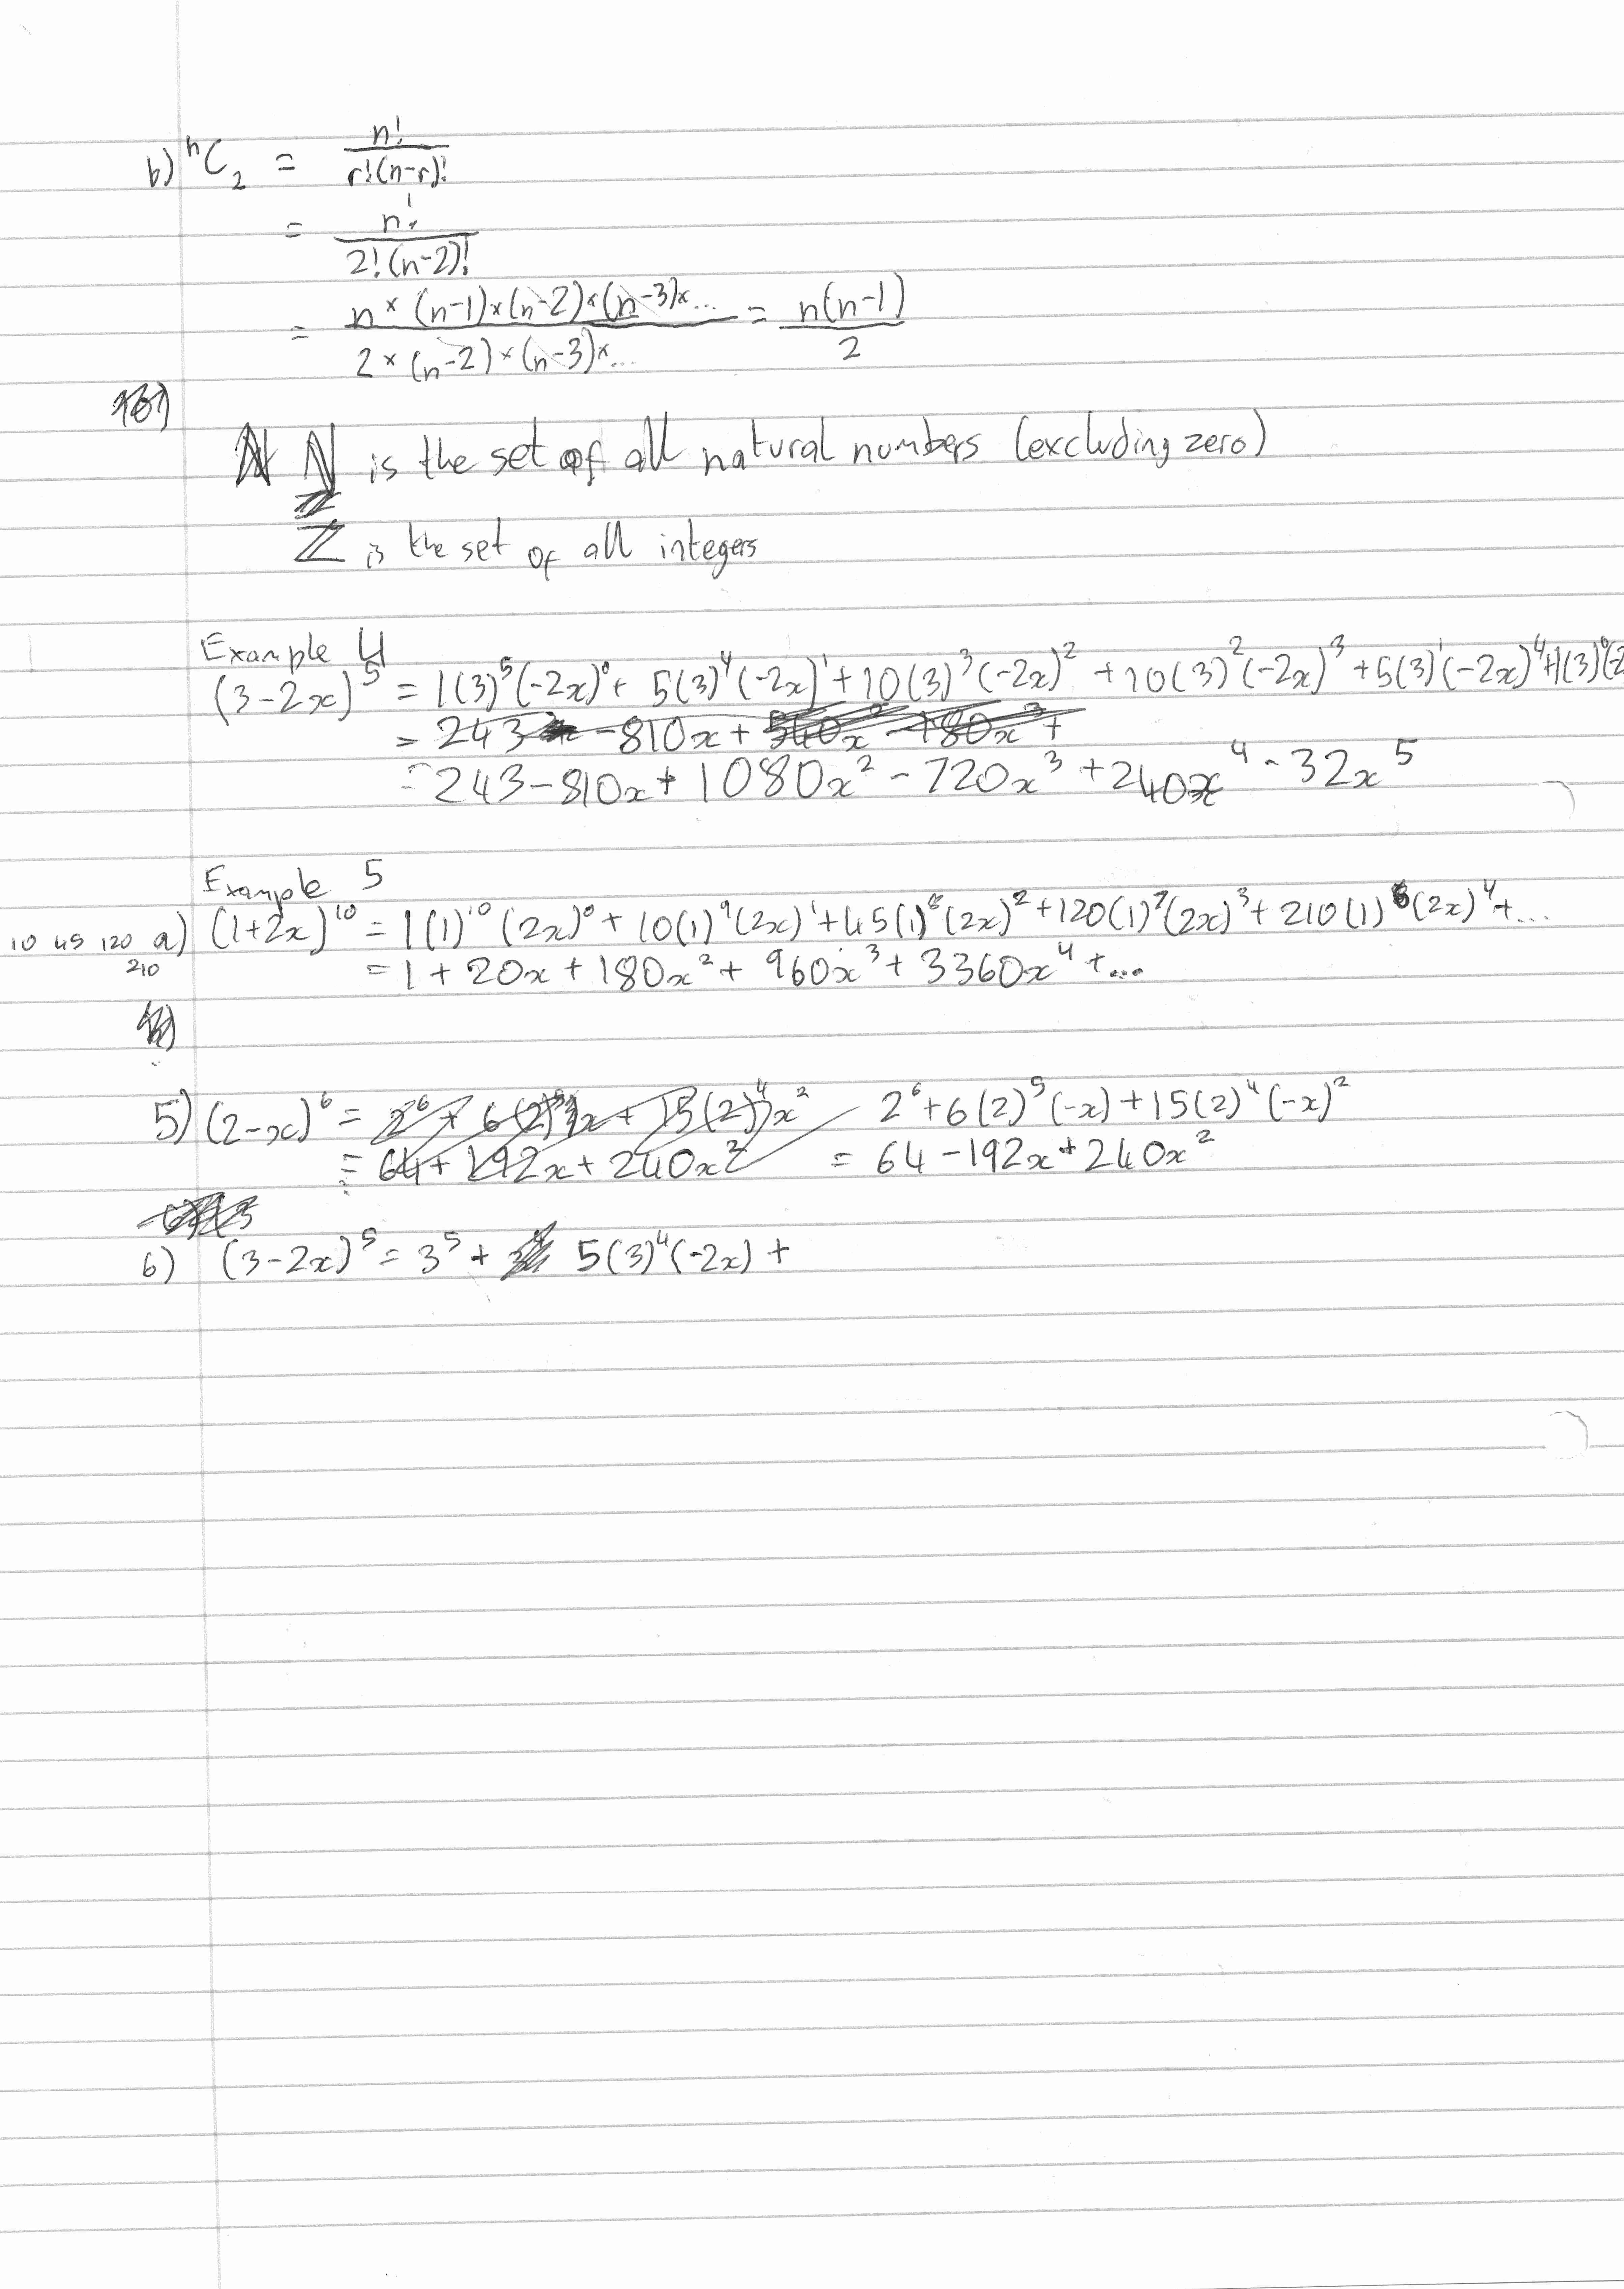 b) ⁿC₂ = n!/r!(n-r)!
= n!/2!(n-2)!
= n×(n-1)×(n-2)×(n-3)×.../2×(n-2)×(n-3)×... = n(n-1)/2
ℕ is the set of all natural numbers (excluding zero)
ℤ is the set of all integers
Example 4
(3-2x)⁵ = 1(3)⁵(-2x)⁰+ 5(3)⁴(-2x)¹+10(3)³(-2x)² +10(3)²(-2x)³+5(3)¹(-2x)⁴+1(3)⁰(-2
= 243 -810x+ 540x² -180x³+
= 243-810x+1080x²-720x³+240x⁴-32x⁵
Example 5
10 45 120 a) (1+2x)¹⁰ = 1(1)¹⁰(2x)⁰+10(1)⁹(2x)¹+45(1)⁸(2x)²+120(1)⁷(2x)³+210(1)⁶(2x)⁴+...
210
= 1+20x+180x²+960x³+3360x⁴+...
5) (2-x)⁶ = 2⁶+6(2)⁵(-x)+15(2)⁴(-x)²
= 64+192x+240x² = 64-192x+240x²
6) (3-2x)⁵= 3⁵+ 5(3)⁴(-2x)+